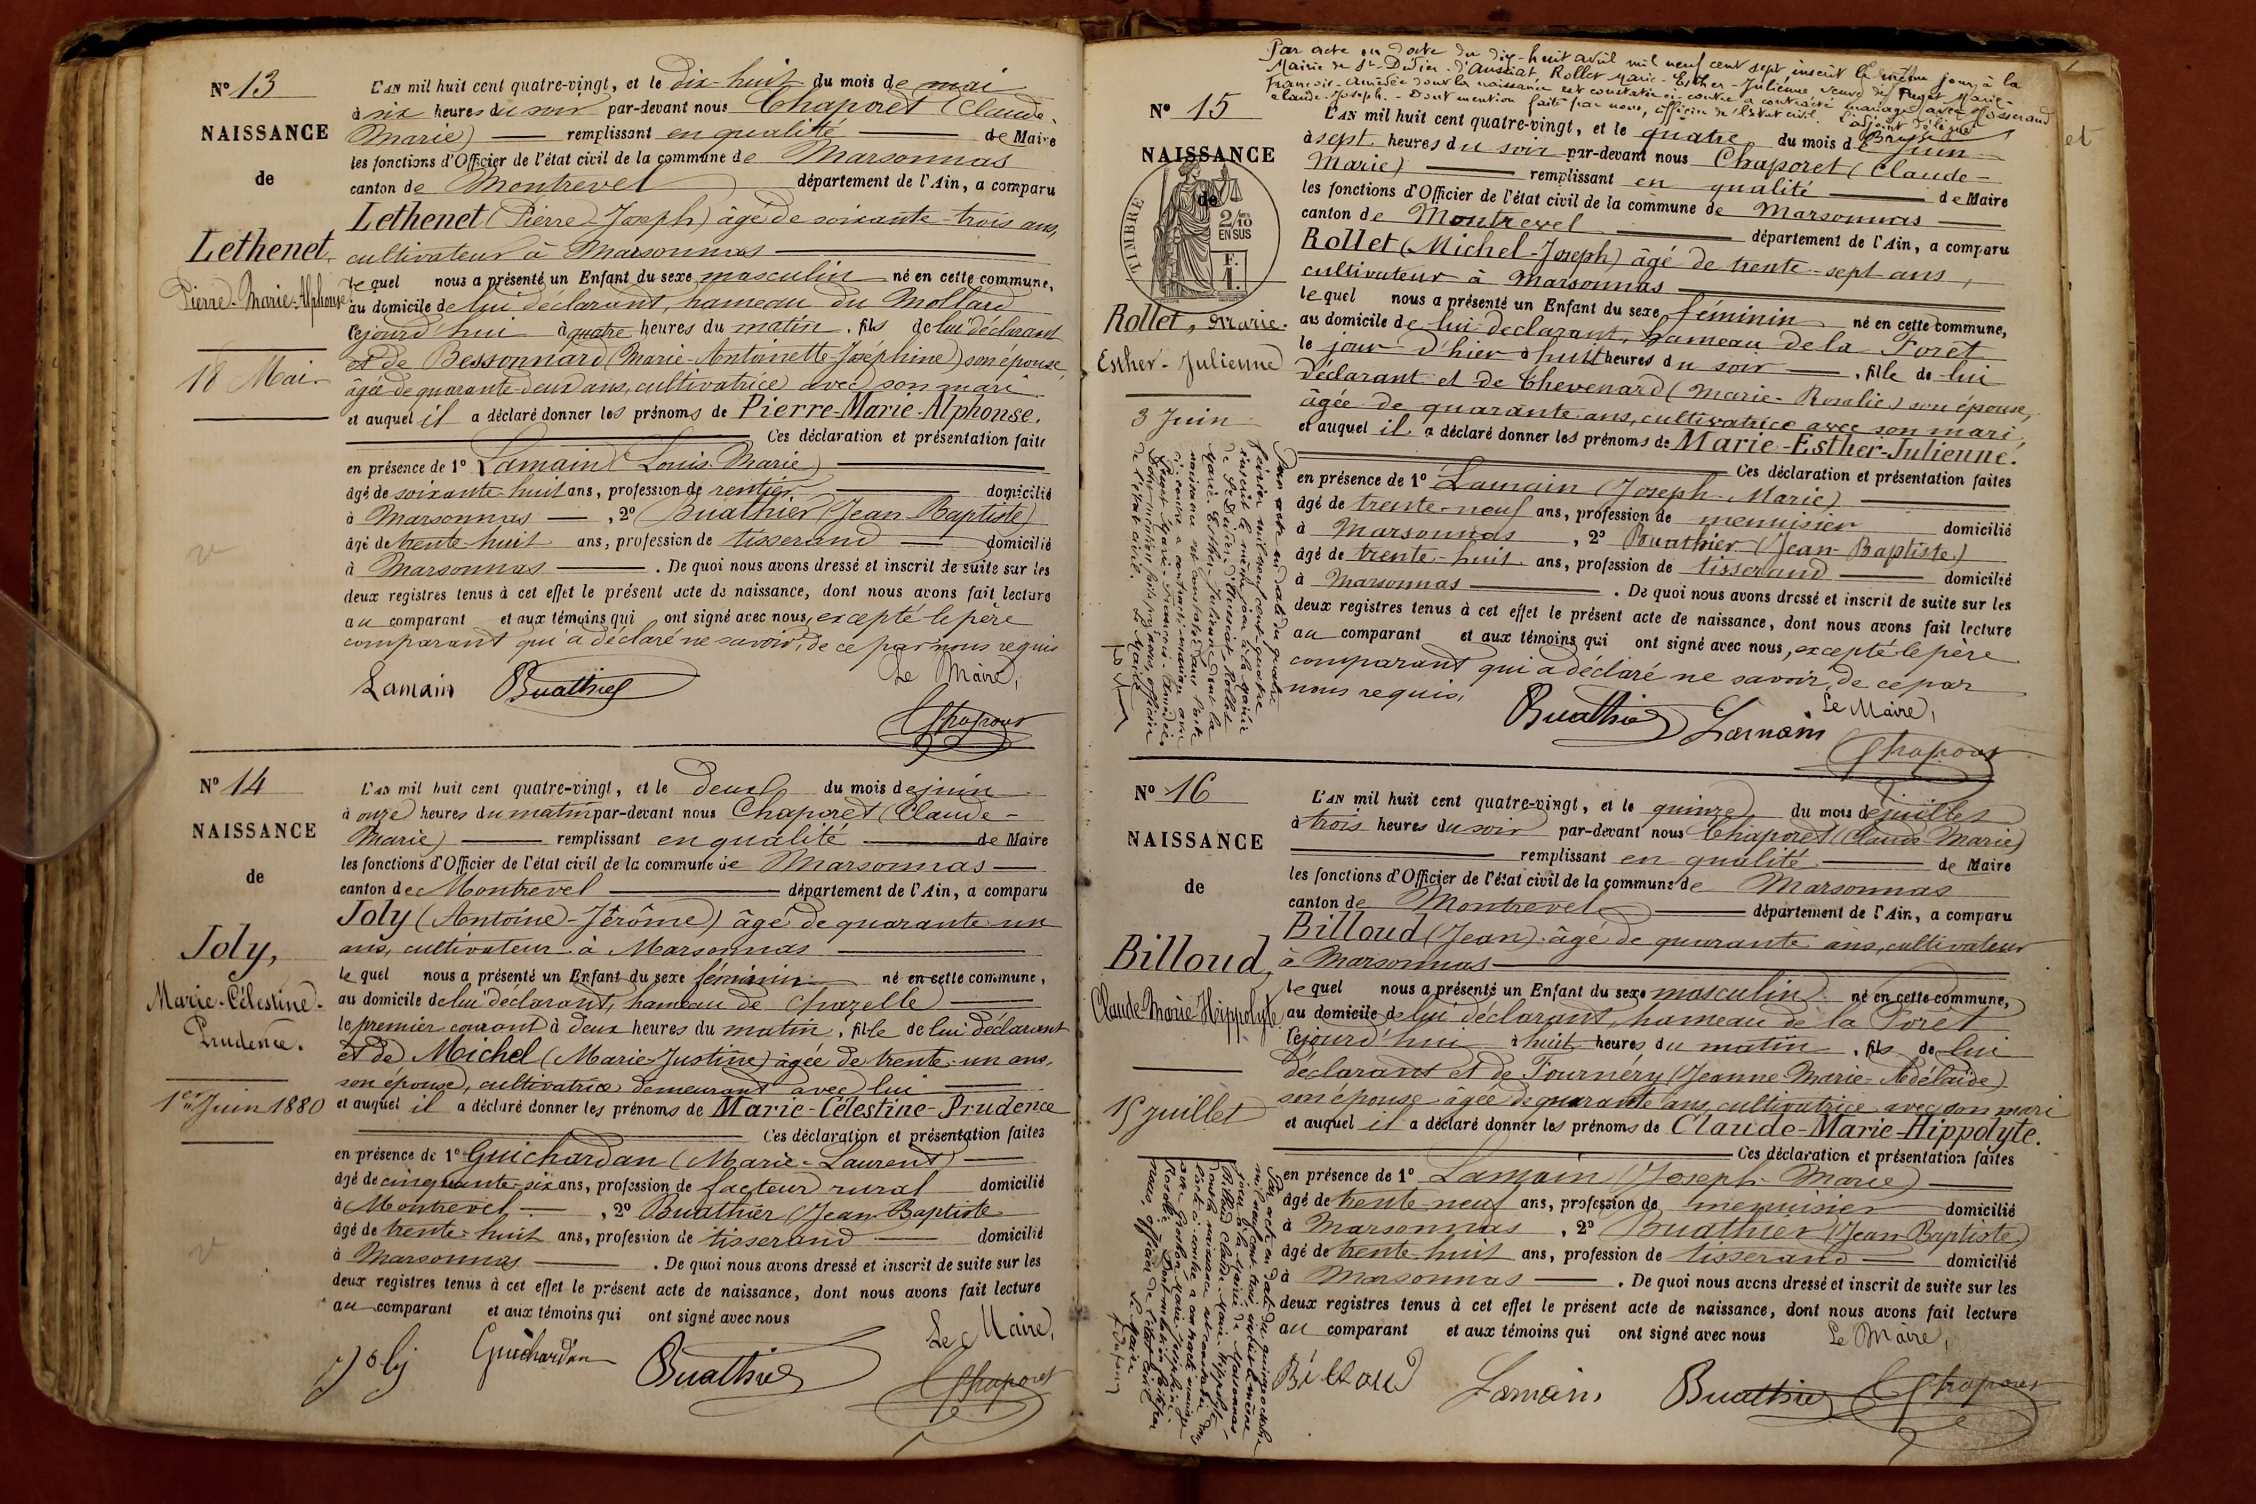 Nº 13
NAISSANCE
de
Lethenet,
Pierre-Marie-Alphonse.
18 Mai
L'an mil huit cent quatre-vingt, et le dix-huit du mois de mai
à six heures du soir par-devant nous Chaporet (Claude-
Marie) remplissant en qualité de Maire
les fonctions d'Officier de l'état civil de la commune de Marsonnas
canton de Montrevel département de l'Ain, a comparu
Lethenet (Pierre-Joseph) âgé de soixante-trois ans,
cultivateur à Marsonnas
lequel nous a présenté un Enfant du sexe masculin né en cette commune,
au domicile de lui déclarant, hameau du Mollard
cejourd'hui à quatre heures du matin, fils de lui déclarant
et de Bessonnard (Marie-Antoinette-Joséphine) son épouse
âgée de quarante-deux ans, cultivatrice avec son mari
et auquel il a déclaré donner les prénoms de Pierre-Marie-Alphonse.
Ces déclaration et présentation faite
en présence de 1º Lamain (Louis Marie)
âgé de soixante-huit ans, profession de rentier domicilié
à Marsonnas, 2º Buathier (Jean-Baptiste)
âgé de trente-huit ans, profession de tisserand domicilié
à Marsonnas. De quoi nous avons dressé et inscrit de suite sur les
deux registres tenus à cet effet le présent acte de naissance, dont nous avons fait lecture
au comparant et aux témoins qui ont signé avec nous, excepté le père
comparant qui a déclaré ne savoir, de ce par nous requis
Le Maire,
Lamain Buathier
Chaporet
Nº 14
NAISSANCE
de
Joly,
Marie-Célestine-
Prudence.
1er Juin 1880
L'an mil huit cent quatre-vingt, et le deux du mois de juin
à onze heures du matin par-devant nous Chaporet (Claude-
Marie) remplissant en qualité de Maire
les fonctions d'Officier de l'état civil de la commune de Marsonnas
canton de Montrevel département de l'Ain, a comparu
Joly (Antoine-Jérôme) âgé de quarante-un
ans, cultivateur à Marsonnas
lequel nous a présenté un Enfant du sexe féminin né en cette commune,
au domicile de lui déclarant, hameau de Chazelle
le premier courant à deux heures du matin, fille de lui déclarant
et de Michel (Marie-Justine) âgée de trente-un ans,
son épouse, cultivatrice demeurant avec lui
et auquel il a déclaré donner les prénoms de Marie-Célestine-Prudence
Ces déclaration et présentation faites
en présence de 1º Guichardan (Marie-Laurent)
âgé de cinquante-six ans, profession de facteur rural domicilié
à Montrevel, 2º Buathier (Jean-Baptiste
âgé de trente-huit ans, profession de tisserand domicilié
à Marsonnas. De quoi nous avons dressé et inscrit de suite sur les
deux registres tenus à cet effet le présent acte de naissance, dont nous avons fait lecture
au comparant et aux témoins qui ont signé avec nous
Le Maire,
Joly Guichardan Buathier
Chaporet
Par acte en date du dix-huit avril mil neuf cent sept inscrit le même jour, à la
Mairie de St-Didier-d'Aussiat, Rollet Marie-Esther-Julienne, veuve de Puget Marie-
François-Amédée dont la naissance est constatée ci-contre a contracté mariage avec Josserand
Claude-Joseph. - Dont mention faite par nous, officier de l'état civil. L'adjoint délégué
Nº 15
NAISSANCE
de
TIMBRE
2/10
EN SUS
F.
1.
Rollet, Marie-
Esther-Julienne
3 Juin
L'an mil huit cent quatre-vingt, et le quatre du mois de juin
à sept heures du soir par-devant nous Chaporet (Claude-
Marie) remplissant en qualité de Maire
les fonctions d'Officier de l'état civil de la commune de Marsonnas
canton de Montrevel département de l'Ain, a comparu
Rollet (Michel-Joseph) âgé de trente-sept ans,
cultivateur à Marsonnas
lequel nous a présenté un Enfant du sexe féminin né en cette commune,
au domicile de lui déclarant, hameau de la Forêt
le jour d'hier à huit heures du soir, fille de lui
déclarant et de Chevenard (Marie-Rosalie) son épouse,
âgée de quarante ans, cultivatrice avec son mari,
et auquel il a déclaré donner les prénoms de Marie-Esther-Julienne.
Ces déclaration et présentation faites
en présence de 1º Lamain (Joseph-Marie)
âgé de trente-neuf ans, profession de menuisier domicilié
à Marsonnas, 2º Buathier (Jean-Baptiste)
âgé de trente-huit ans, profession de tisserand domicilié
à Marsonnas. De quoi nous avons dressé et inscrit de suite sur les
deux registres tenus à cet effet le présent acte de naissance, dont nous avons fait lecture
au comparant et aux témoins qui ont signé avec nous, excepté le père
comparant qui a déclaré ne savoir, de ce par
nous requis,
Le Maire,
Buathier Lamain
Chaporet
Par acte en date du quatre
février mil neuf cent quatre
inscrit le même jour à la mairie
de St-Didier-d'Aussiat, Rollet
Marie-Esther-Julienne dont la
naissance est constatée dans l'acte
ci-contre a contracté mariage avec
Puget Marie-François-Amédée.
Dont mention faite par nous, officier
de l'état civil. Le Maire
Nº 16
NAISSANCE
de
Billoud,
Claude-Marie-Hippolyte
15 juillet
L'an mil huit cent quatre-vingt, et le quinze du mois de juillet
à trois heures du soir par-devant nous Chaporet (Claude-Marie)
remplissant en qualité de Maire
les fonctions d'Officier de l'état civil de la commune de Marsonnas
canton de Montrevel département de l'Ain, a comparu
Billoud (Jean) âgé de quarante ans, cultivateur
à Marsonnas
lequel nous a présenté un Enfant du sexe masculin né en cette commune,
au domicile de lui déclarant, hameau de la Forêt
cejourd'hui à huit heures du matin, fils de lui
déclarant et de Fournéry (Jeanne-Marie-Adélaïde)
son épouse âgée de quarante ans, cultivatrice avec son mari
et auquel il a déclaré donner les prénoms de Claude-Marie-Hippolyte.
Ces déclaration et présentation faites
en présence de 1º Lamain (Joseph-Marie)
âgé de trente-neuf ans, profession de menuisier domicilié
à Marsonnas, 2º Buathier (Jean-Baptiste)
âgé de trente-huit ans, profession de tisserand domicilié
à Marsonnas. De quoi nous avons dressé et inscrit de suite sur les
deux registres tenus à cet effet le présent acte de naissance, dont nous avons fait lecture
au comparant et aux témoins qui ont signé avec nous
Le Maire,
Billoud Lamain Buathier Chaporet
Par acte en date du quinze octobre
mil neuf cent trois, inscrit le même
jour à la mairie de Marsonnas
Billoud Claude-Marie-Hippolyte,
dont la naissance est constatée dans
l'acte ci-contre a contracté mariage
avec Marie Joséphine
Rosalie. Dont mention faite par
nous, officier de l'état civil
Le Maire